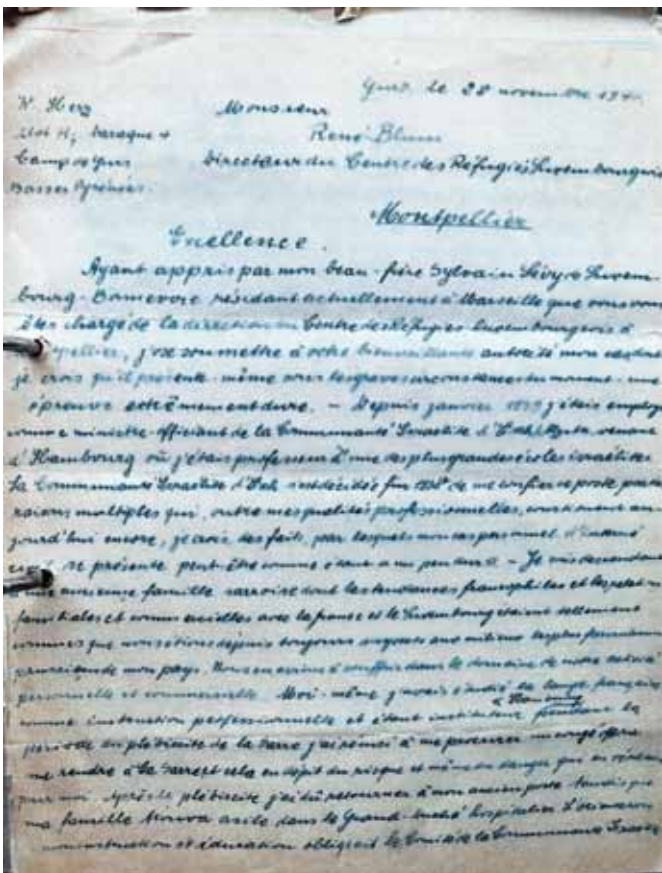 Gurs, le 28 novembre 1940
N. Herz
Monsieur
Ilot H, baraque 4
René Blum
Camp de Gurs
Directeur du Centre des Réfugiés Luxembourgeois
Basses Pyrénées.
Montpellier
Excellence.
Ayant appris par mon beau-frère Sylvain Lévy de Luxem-
bourg-Bonnevoie résidant actuellement à Marseille que vous vous
êtes chargé de la direction du Centre des Réfugiés luxembourgeois à
pellier, j'ose soumettre à votre bienveillante autorité mon cas dont
je crois qu'il présente même sous les graves circonstances du moment une
épreuve extrêmement dure. – Depuis janvier 1939 j'étais employé
comme ministre-officiant de la Communauté Israélite d' venant
d'Hambourg où j'étais professeur à une des plus grandes écoles israélites
La Communauté Israélite d'Esch s'est décidée fin 1938 de me confier ce poste pour
raisons multiples qui, outre mes qualités professionnelles, constituent au-
jourd'hui encore, je crois des faits, par lesquels mon cas personnel
se présente peut-être comme étant – Je suis descendant
ancienne famille sarroise dont les tendances francophiles et les relations
familiales et commerciales avec la France et le Luxembourg étaient tellement
connues que nous étions depuis toujours aux milieux
de mon pays. Nous en avions à souffrir dans le domaine de notre activité
personnelle et commerciale. Moi-même j'avais étudié la langue française
comme instruction professionnelle et étant instituteur pendant la
période du plébiscite de la Sarre j'ai réussi à me procurer un congé
me rendre à la Sarre et cela en dépit du risque et même du danger qui en
pour moi. Après le plébiscite j'ai dû retourner à mon ancien poste tandis que
ma famille trouva asile dans le Grand-Duché hospitalier.
instruction et éducation obligeait le Comité de la Communauté